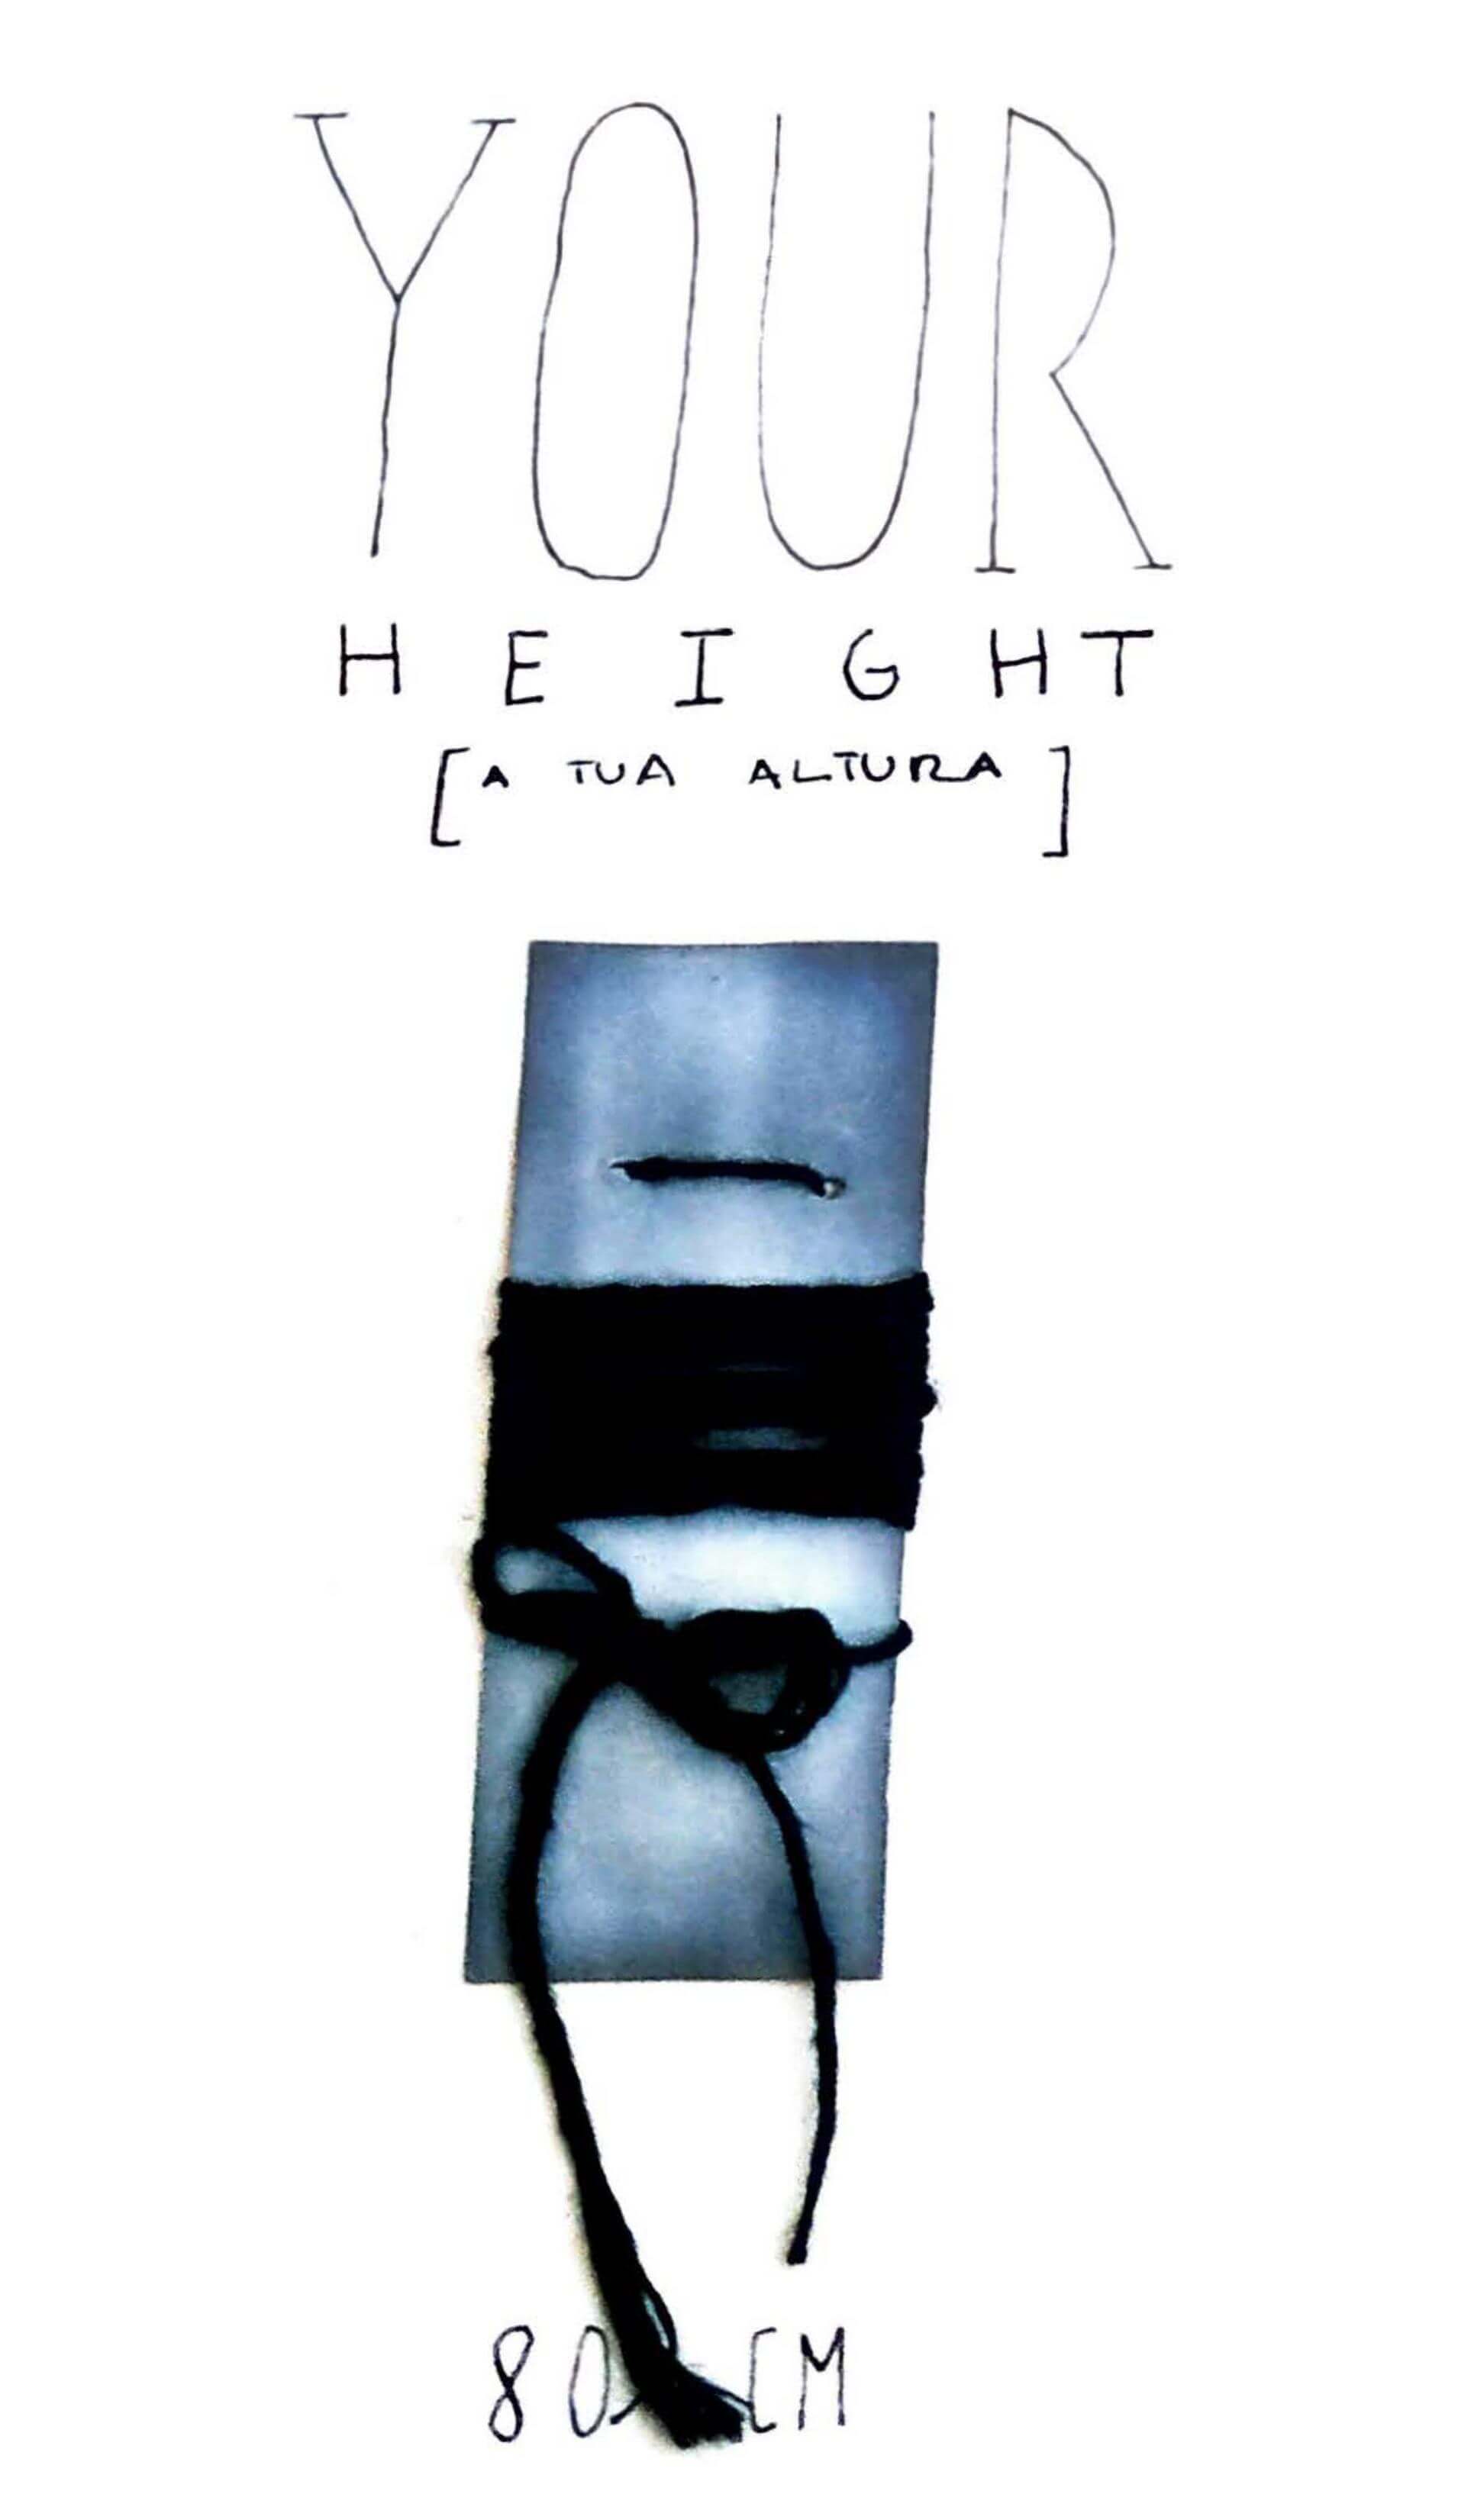 YOUR
HEIGHT
[A TUA ALTURA]
80 CM